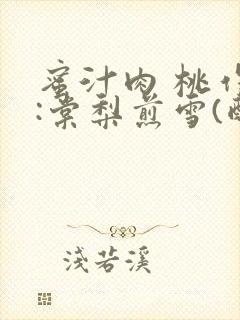 蜜汁肉桃 作
:棠梨煎雪(
浅若溪